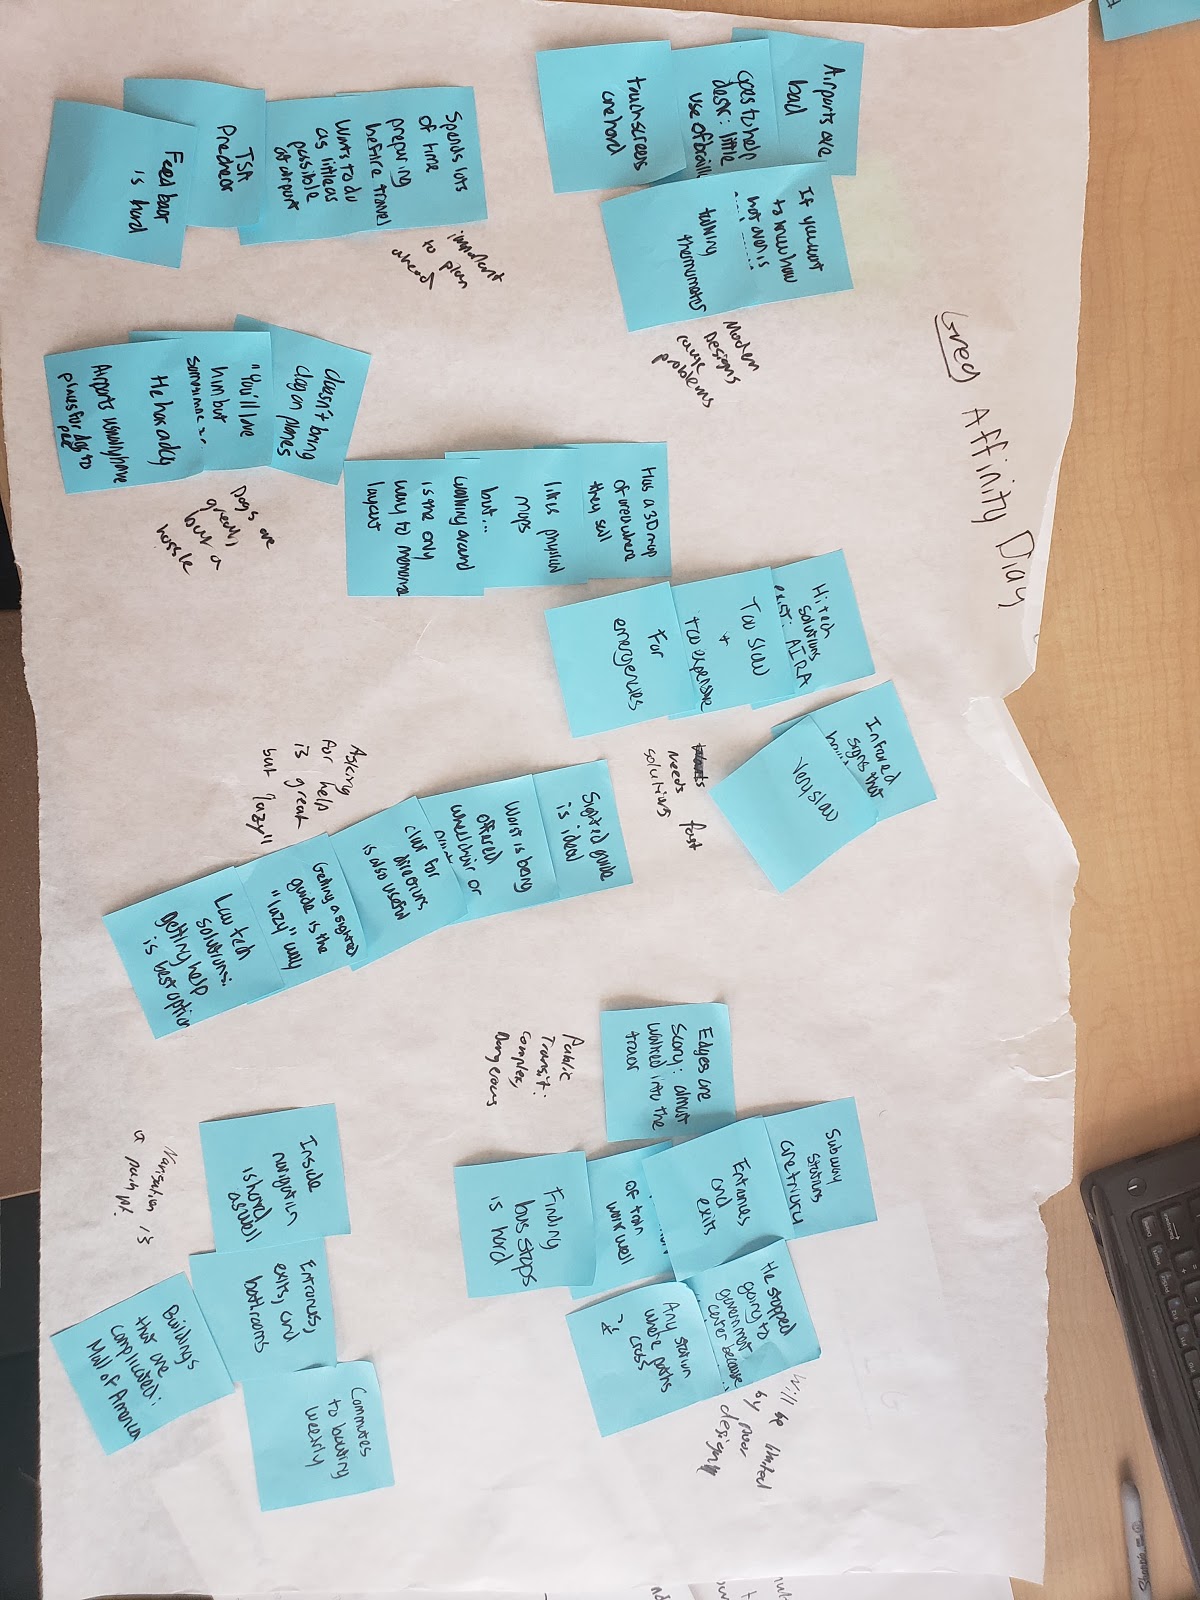 Greg Affinity Diag
Airports are
bad
Goes to help
desk: little
use of braille
touchscreens
are hard
If you want
to know how
hot oven is
......
talking
thermometer
Modern
Designs
cause
problems
Spends lots
of time
preparing
before travel
Wants to do
as little as
possible
at airport
TSA
Precheck
Feed back
is hard
important
to plan
ahead
doesn't bring
dog on planes
"You'll love
him but
He has a dog
Airports usually have
places for dog to
pee
Dogs are
great,
but a
hassle
Has a 3D map
of area where
they sail
likes physical
maps
but...
walking around
is the only
way to memorize
layout
Hi tech
solutions
exist: AIRA
Too slow
+
too expensive
For
emergencies
Infrared
signs that
very slow
needs fast
solutions
Sighted guide
is ideal
Worst is being
offered
wheelchair or
directions
is also useful
Getting a sighted
guide is the
"lazy" way
Low tech
solutions:
getting help
is best option
Asking
for help
is great
but "lazy"
Edges are
scary: almost
walked into the
Subway
stations
are tricky
Entrances
and
exits
of train
work well
Finding
bus stops
is hard
He stopped
going to
government
center because
Any station
where paths
cross
Public
Transit:
Complex,
Dangerous
Will be limited
by poor
design
Inside
navigation
is hard
as well
Entrances,
exits, and
bathrooms
Buildings
that are
complicated:
Mall of America
Commutes
to boating
weekly
Navigation is
a pain pt.
Sharpie